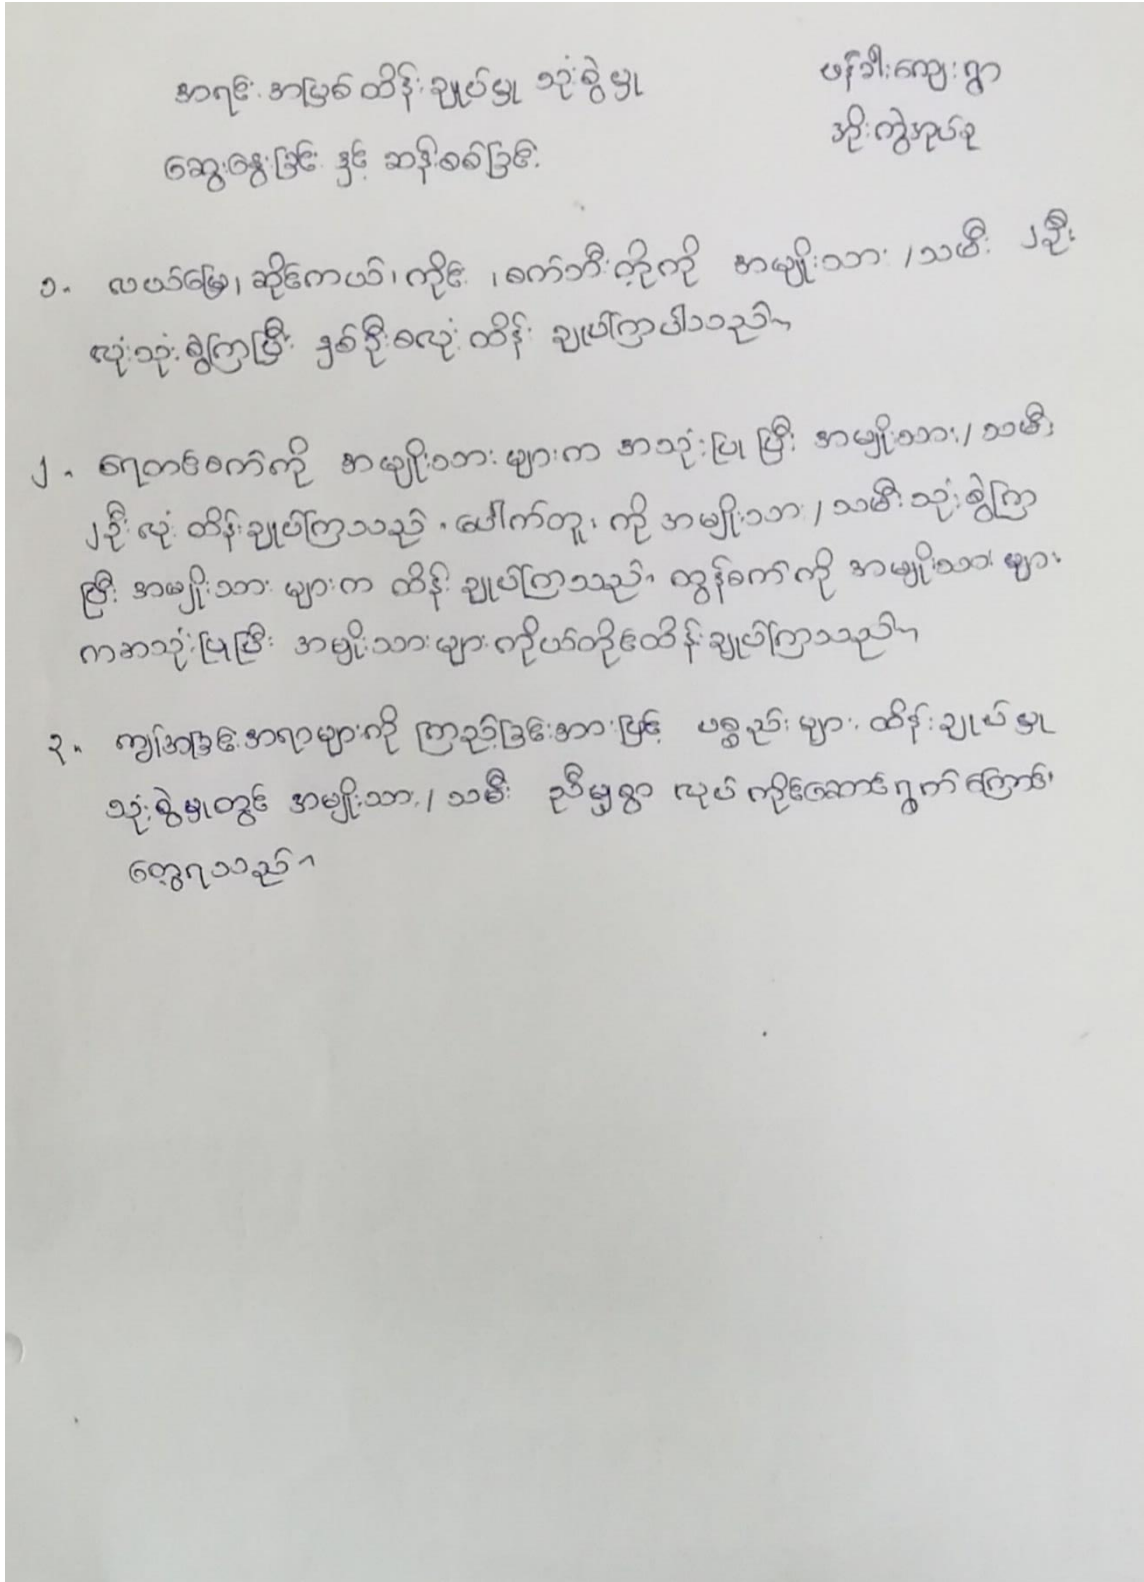 အရင်းအမြစ်ထိန်းချုပ်မှု သုံးစွဲမှု
ဖန်ခါးကျေးရွာ
ဆွေးနွေးခြင်း နှင့် ဆန်းစစ်ခြင်း
အိုးကွဲအုပ်စု
၁။ လယ်မြေ၊ ဆိုင်ကယ်၊ ကိုင်း ၊ စက်ဘီးတို့ကို အမျိုးသား / သမီး ၂ ဦး
လုံးသုံးစွဲကြပြီး နှစ်ဦးစလုံးထိန်း ချုပ်ကြပါသည်။
၂ ။ ရေတင်စက်ကို အမျိုးသားများက အသုံးပြု ပြီး အမျိုးသား / သမီး
၂ဦးလုံး ထိန်းချုပ်ကြသည် ။ ပေါက်တူး ကို အမျိုးသား / သမီး သုံးစွဲကြ
ပြီး အမျိုးသား များက ထိန်း ချုပ်ကြသည်။ ထွန်စက်ကို အမျိုးသား များ
ကအသုံးပြုပြီး အမျိုးသားများကိုယ်တိုင်ထိန်းချုပ်ကြသည်။
၃။ ကျွန်အခြင်းအရာများကို ကြည့်ခြင်းအားဖြင့် ပစ္စည်းများ ထိန်းချုပ်မှု
သုံးစွဲမှုတွင် အမျိုးသား / သမီး ညီမျှစွာ လုပ်ကိုင်ဆောင်ရွက်ကြောင်း
တွေ့ရသည်။